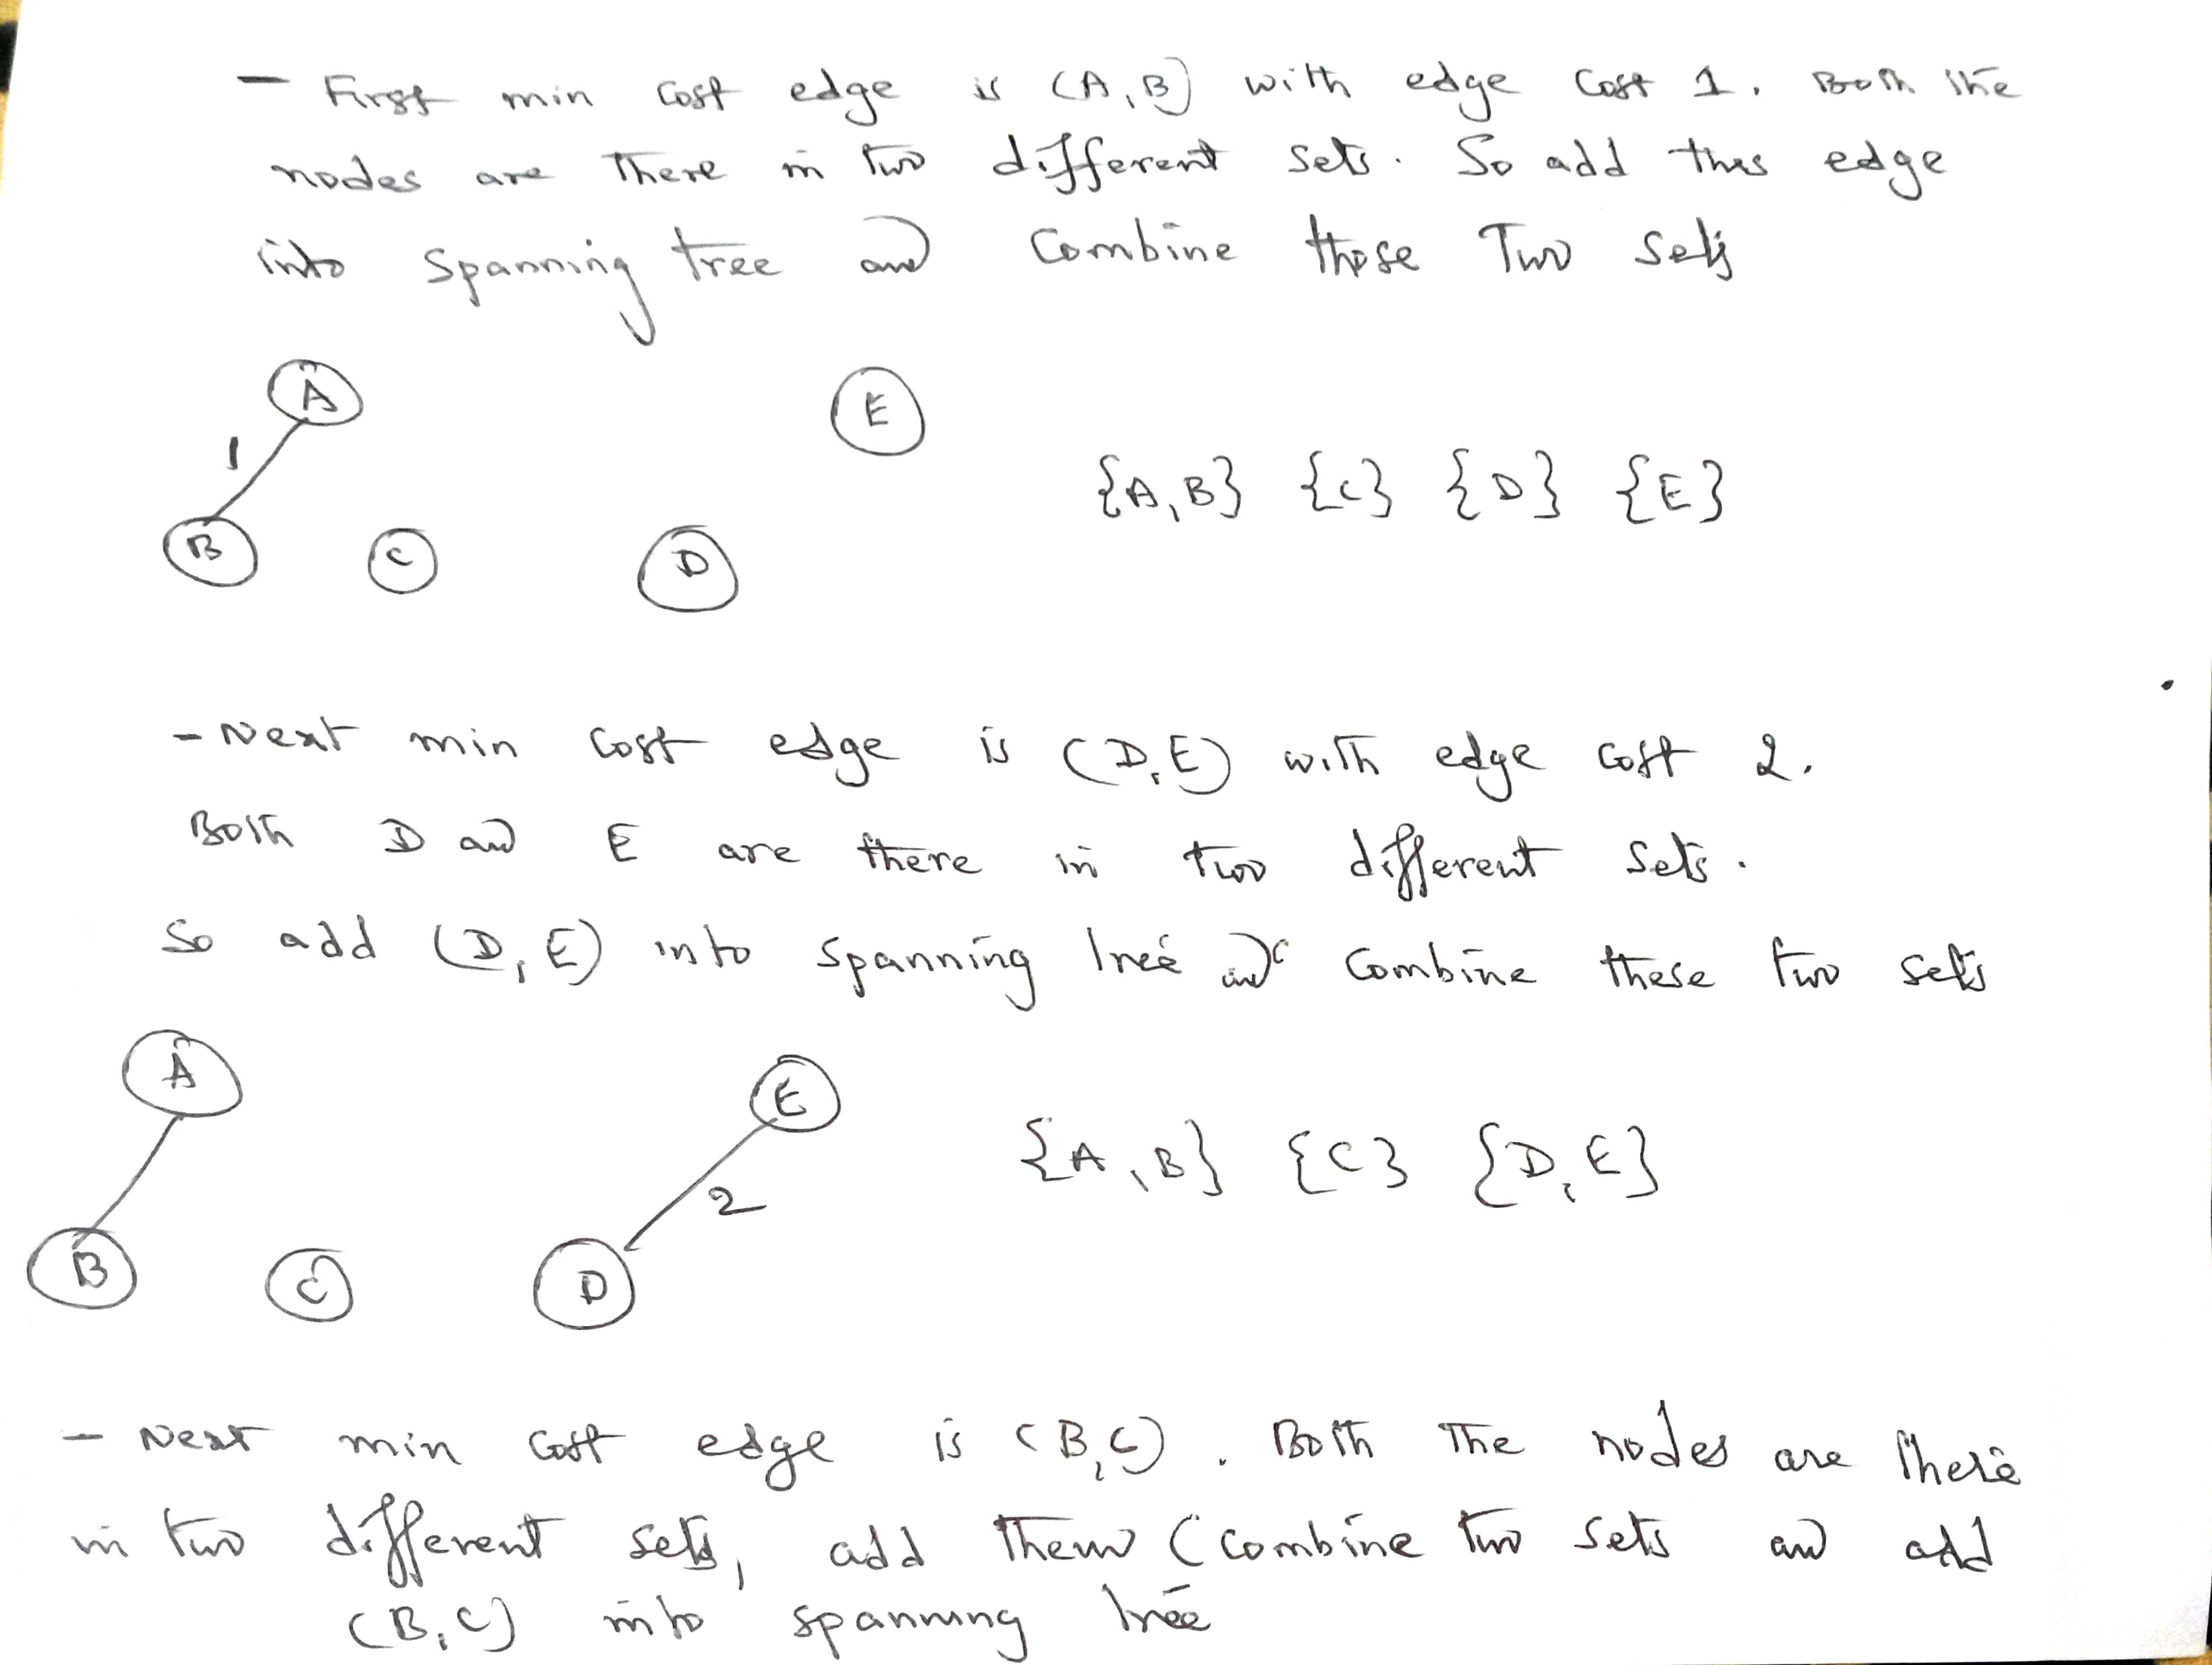 - First min cost edge is (A,B) with edge cost 1. Both the
nodes are there in two different sets. So add this edge
into spanning tree and combine those Two sets
A
E
1
{A,B} {C} {D} {E}
B
C
D
- Next min cost edge is (D,E) with edge cost 2.
Both D and E are there in two different sets.
So add (D,E) into spanning tree and combine these two sets
A
E
{A,B} {C} {D,E}
2
B
C
D
- Next min cost edge is (B,C). Both The nodes are there
in two different sets, add them (combine two sets and add
(B,C) into spanning tree